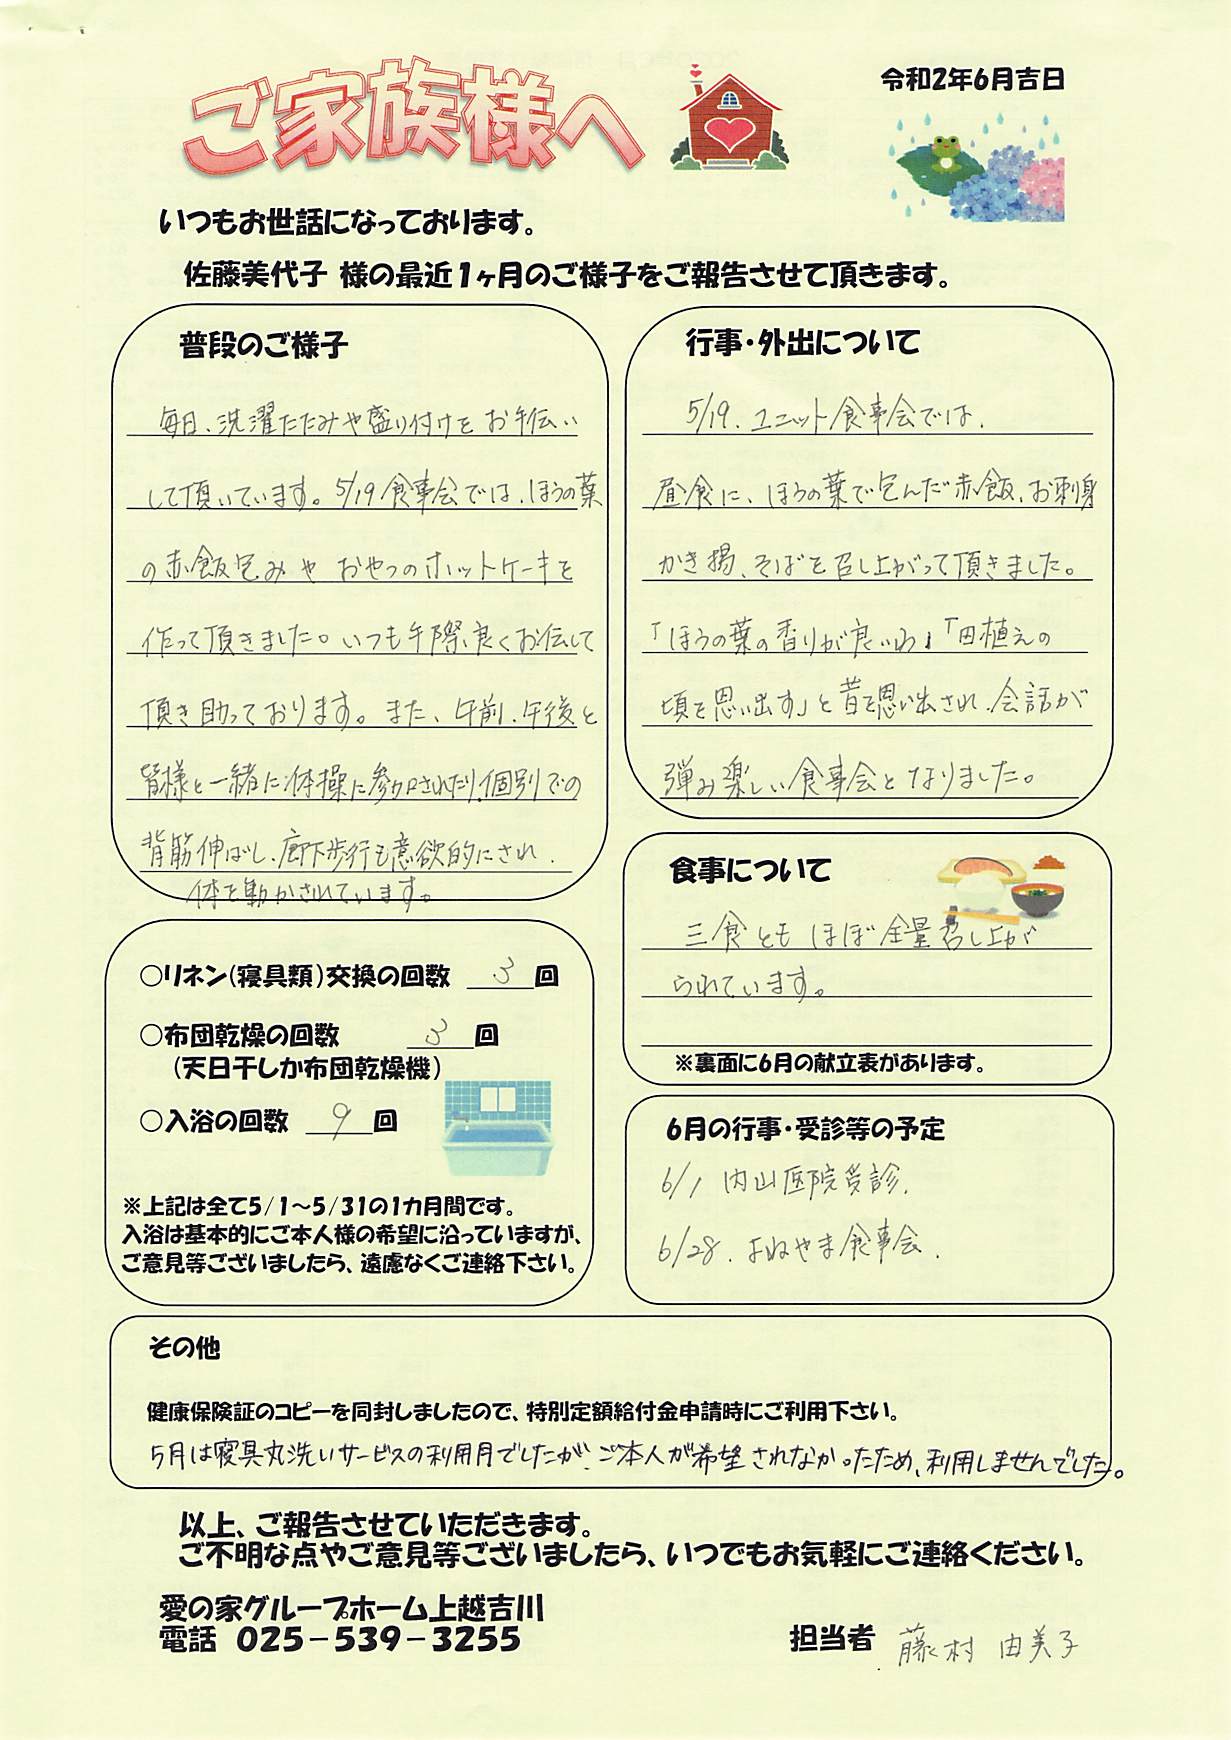 ご家族様へ
令和2年6月吉日
いつもお世話になっております。
佐藤美代子 様の最近1ヶ月のご様子をご報告させて頂きます。
普段のご様子
毎日、洗濯たたみや盛り付けをお手伝い
して頂いています。5/19食事会では、ほうの葉
の赤飯包みや おやつのホットケーキを
作って頂きました。いつも手際良くお伝して
頂き助っております。また、午前、午後と
皆様と一緒に体操に参加されたり、個別での
背筋伸ばし、廊下歩行も意欲的にされ、
体を動かされています。
行事・外出について
5/19、ユニット食事会では、
昼食に、ほうの葉で包んだ赤飯、お刺身
かき揚、そばを召し上がって頂きました。
「ほうの葉の香りが良いわ」「田植えの
頃を思い出す」と昔を思い出され、会話が
弾み楽しい食事会となりました。
食事について
三食とも ほぼ全量召し上が
られています。
※裏面に6月の献立表があります。
○リネン(寝具類)交換の回数 3 回
○布団乾燥の回数 3 回
(天日干しか布団乾燥機)
○入浴の回数 9 回
※上記は全て5/1~5/31の1カ月間です。
入浴は基本的にご本人様の希望に沿っていますが、
ご意見等ございましたら、遠慮なくご連絡下さい。
6月の行事・受診等の予定
6/1 内山医院受診、
6/28、よねやま食事会、
その他
健康保険証のコピーを同封しましたので、特別定額給付金申請時にご利用下さい。
5月は寝具丸洗いサービスの利用月でしたが、ご本人が希望されなかったため、利用しませんでした。
以上、ご報告させていただきます。
ご不明な点やご意見等ございましたら、いつでもお気軽にご連絡ください。
愛の家グループホーム上越吉川
電話 025-539-3255
担当者 藤村 由美子